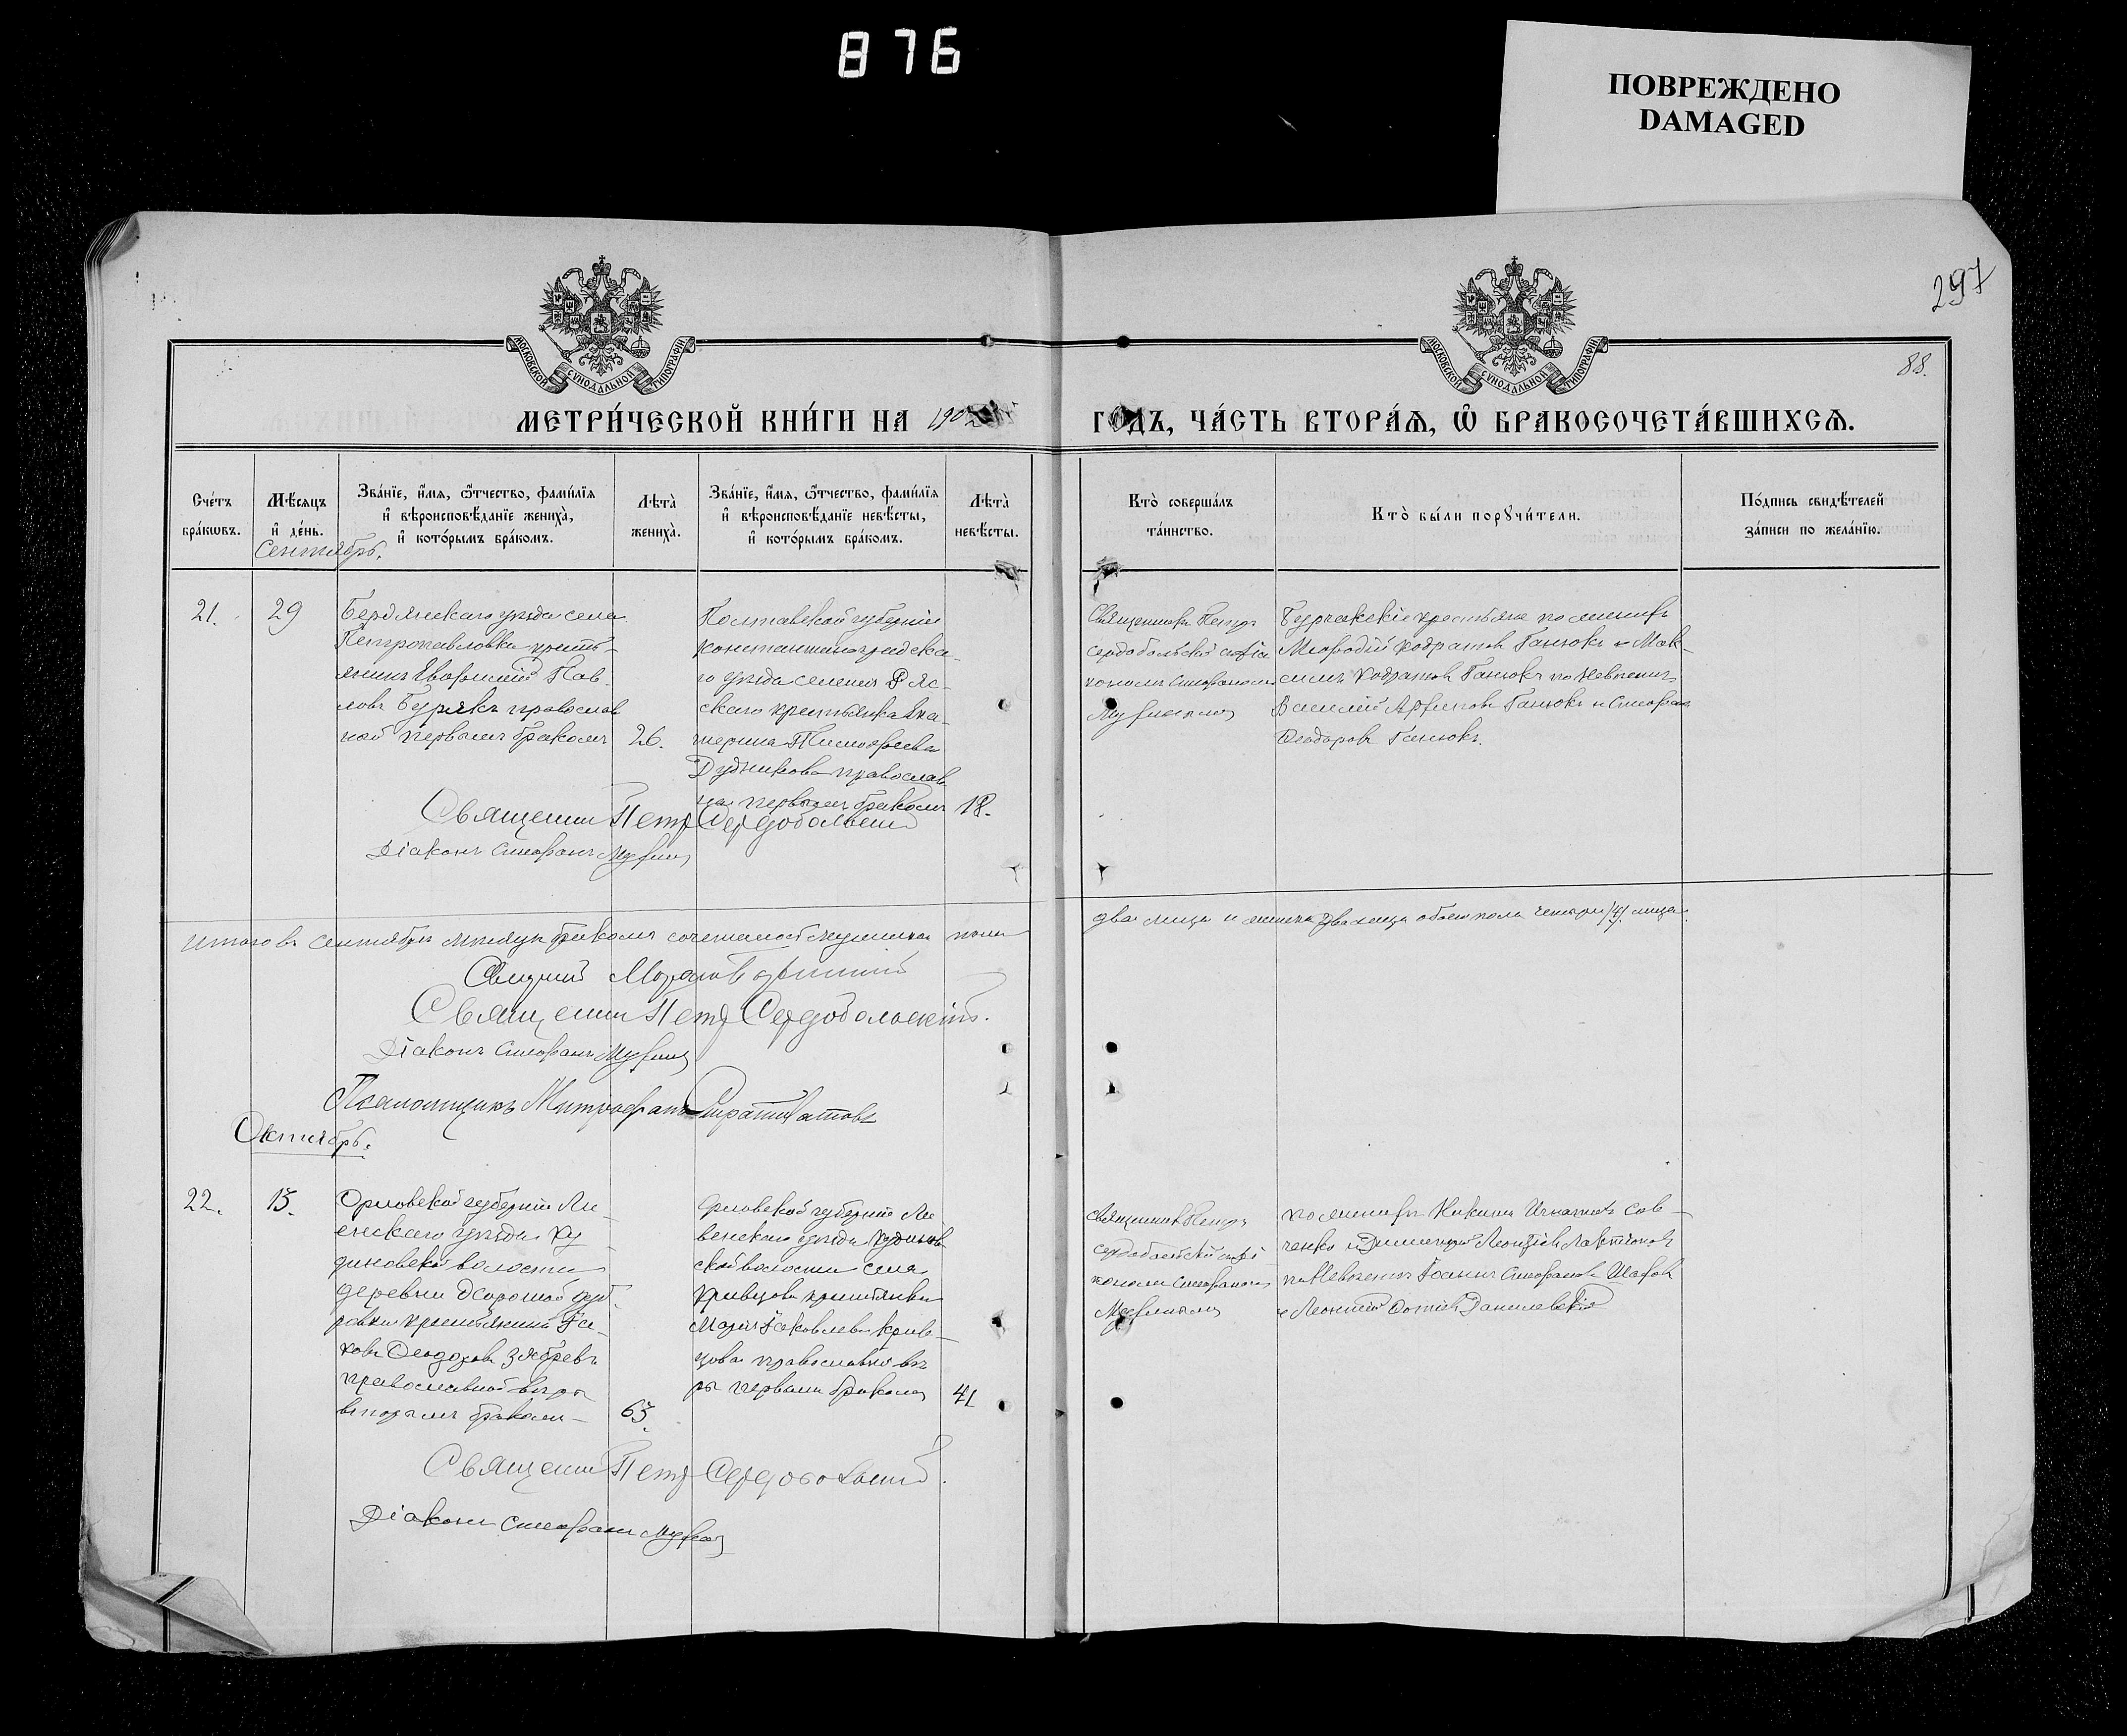 876
ПОВРЕЖДЕНО
DAMAGED
297
88.
МОСКОВСКОЙ СѴНОДАЛЬНОЙ ТИПОГРАФІИ
МОСКОВСКОЙ СѴНОДАЛЬНОЙ ТИПОГРАФІИ
МЕТРИ́ЧЕСКОЙ КНИ́ГИ НА 1902
ГОДЪ, ЧА́СТЬ ВТОРА́Ѧ, Ѡ҆ БРАКОСОЧЕТА́ВШИХСѦ.
Сче́тъ
бра́кѡвъ.
Мѣ́сѧцъ
и҆ де́нь.
Зва́нїе, и҆́мѧ, ѻ҆́тчество, фами́лїѧ
и҆ вѣроисповѣ́данїе жениха̀,
и҆ кото́рымъ бра́комъ.
Лѣта̀
жениха̀.
Зва́нїе, и҆́мѧ, ѻ҆́тчество, фами́лїѧ
и҆ вѣроисповѣ́данїе невѣ́сты,
и҆ кото́рымъ бра́комъ.
Лѣта̀
невѣ́сты.
Кто̀ соверша́лъ
та́инство.
Кто̀ бы́ли порꙋчи́тели.
По́дпись свидѣ́телей
за́писи по жела́нїю.
Сентябрь.
21.
29
Бердянскаго уѣзда села
Петропавловки кресть-
янинъ Пав-
ловъ Бурякъ православ
ной первымъ бракомъ
26.
Полтавской губерніи
константиноградска-
го уѣзда селенія Ряс-
скаго крестьянка Ека-
терина Тимофеева
Дудникова православ
на первымъ бракомъ
18.
Священникъ Петръ
Сердобольскій съ діа
кономъ Стефаномъ
крестьяне по женихѣ
Меѳодій Кодратовъ Ганюкъ и Мак-
симъ Кодратовъ Ганюкъ по невѣстѣ
Василій Архиповъ Ганюкъ и Стефанъ
Ѳеодоровъ Ганюкъ.
Священникъ Петръ Сердобольскій
Діаконъ Стефанъ
Итого въ сентябрѣ мѣсяцѣ бракомъ сочеталось мужскаго пола
два лица и женска два лица обоего пола четыре /4/ лица.
Священникъ Петръ Сердобольскій.
Діаконъ Стефанъ
Псаломщикъ Митрофанъ Стратилатовъ
Октябрь.
22.
13.
Орловской губерніи Ли-
венскаго уѣзда
волости
деревни
крестьянинъ Іа-
ковъ Ѳеодоровъ Зябревъ
православной вѣры
вторымъ бракомъ
63.
Орловской губерніи Ли
венскаго уѣзда
ской волости села
Кривцова крестьянка
Марія Іаковлева Крив-
цова православной вѣ
ры первымъ бракомъ
41
Священникъ Петръ
Сердобольскій съ ді
кономъ Стефаномъ
по женихѣ Игнатовъ Сав-
ченко и Димитрій Лактіоновъ
по невѣстѣ Іоаннъ Стефановъ
и Леонтій Данилевскій
Священникъ Петръ Сердобольскій.
Діаконъ Стефанъ